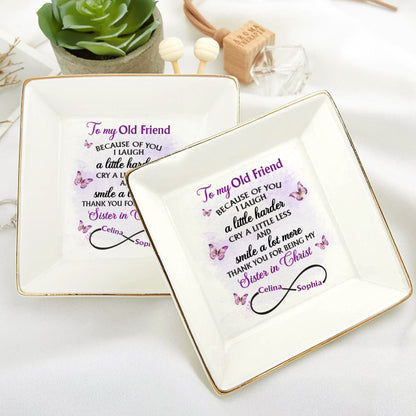 To my Old Friend
BECAUSE OF YOU
I LAUGH
a little harder
CRY A L
A
smile a l
THANK YOU FOR
Sister in C
Celina
Sophia
To my Old Friend
BECAUSE OF YOU
I LAUGH
a little harder
CRY A LITTLE LESS
AND
smile a lot more
THANK YOU FOR BEING MY
Sister in Christ
Celina
Sophia